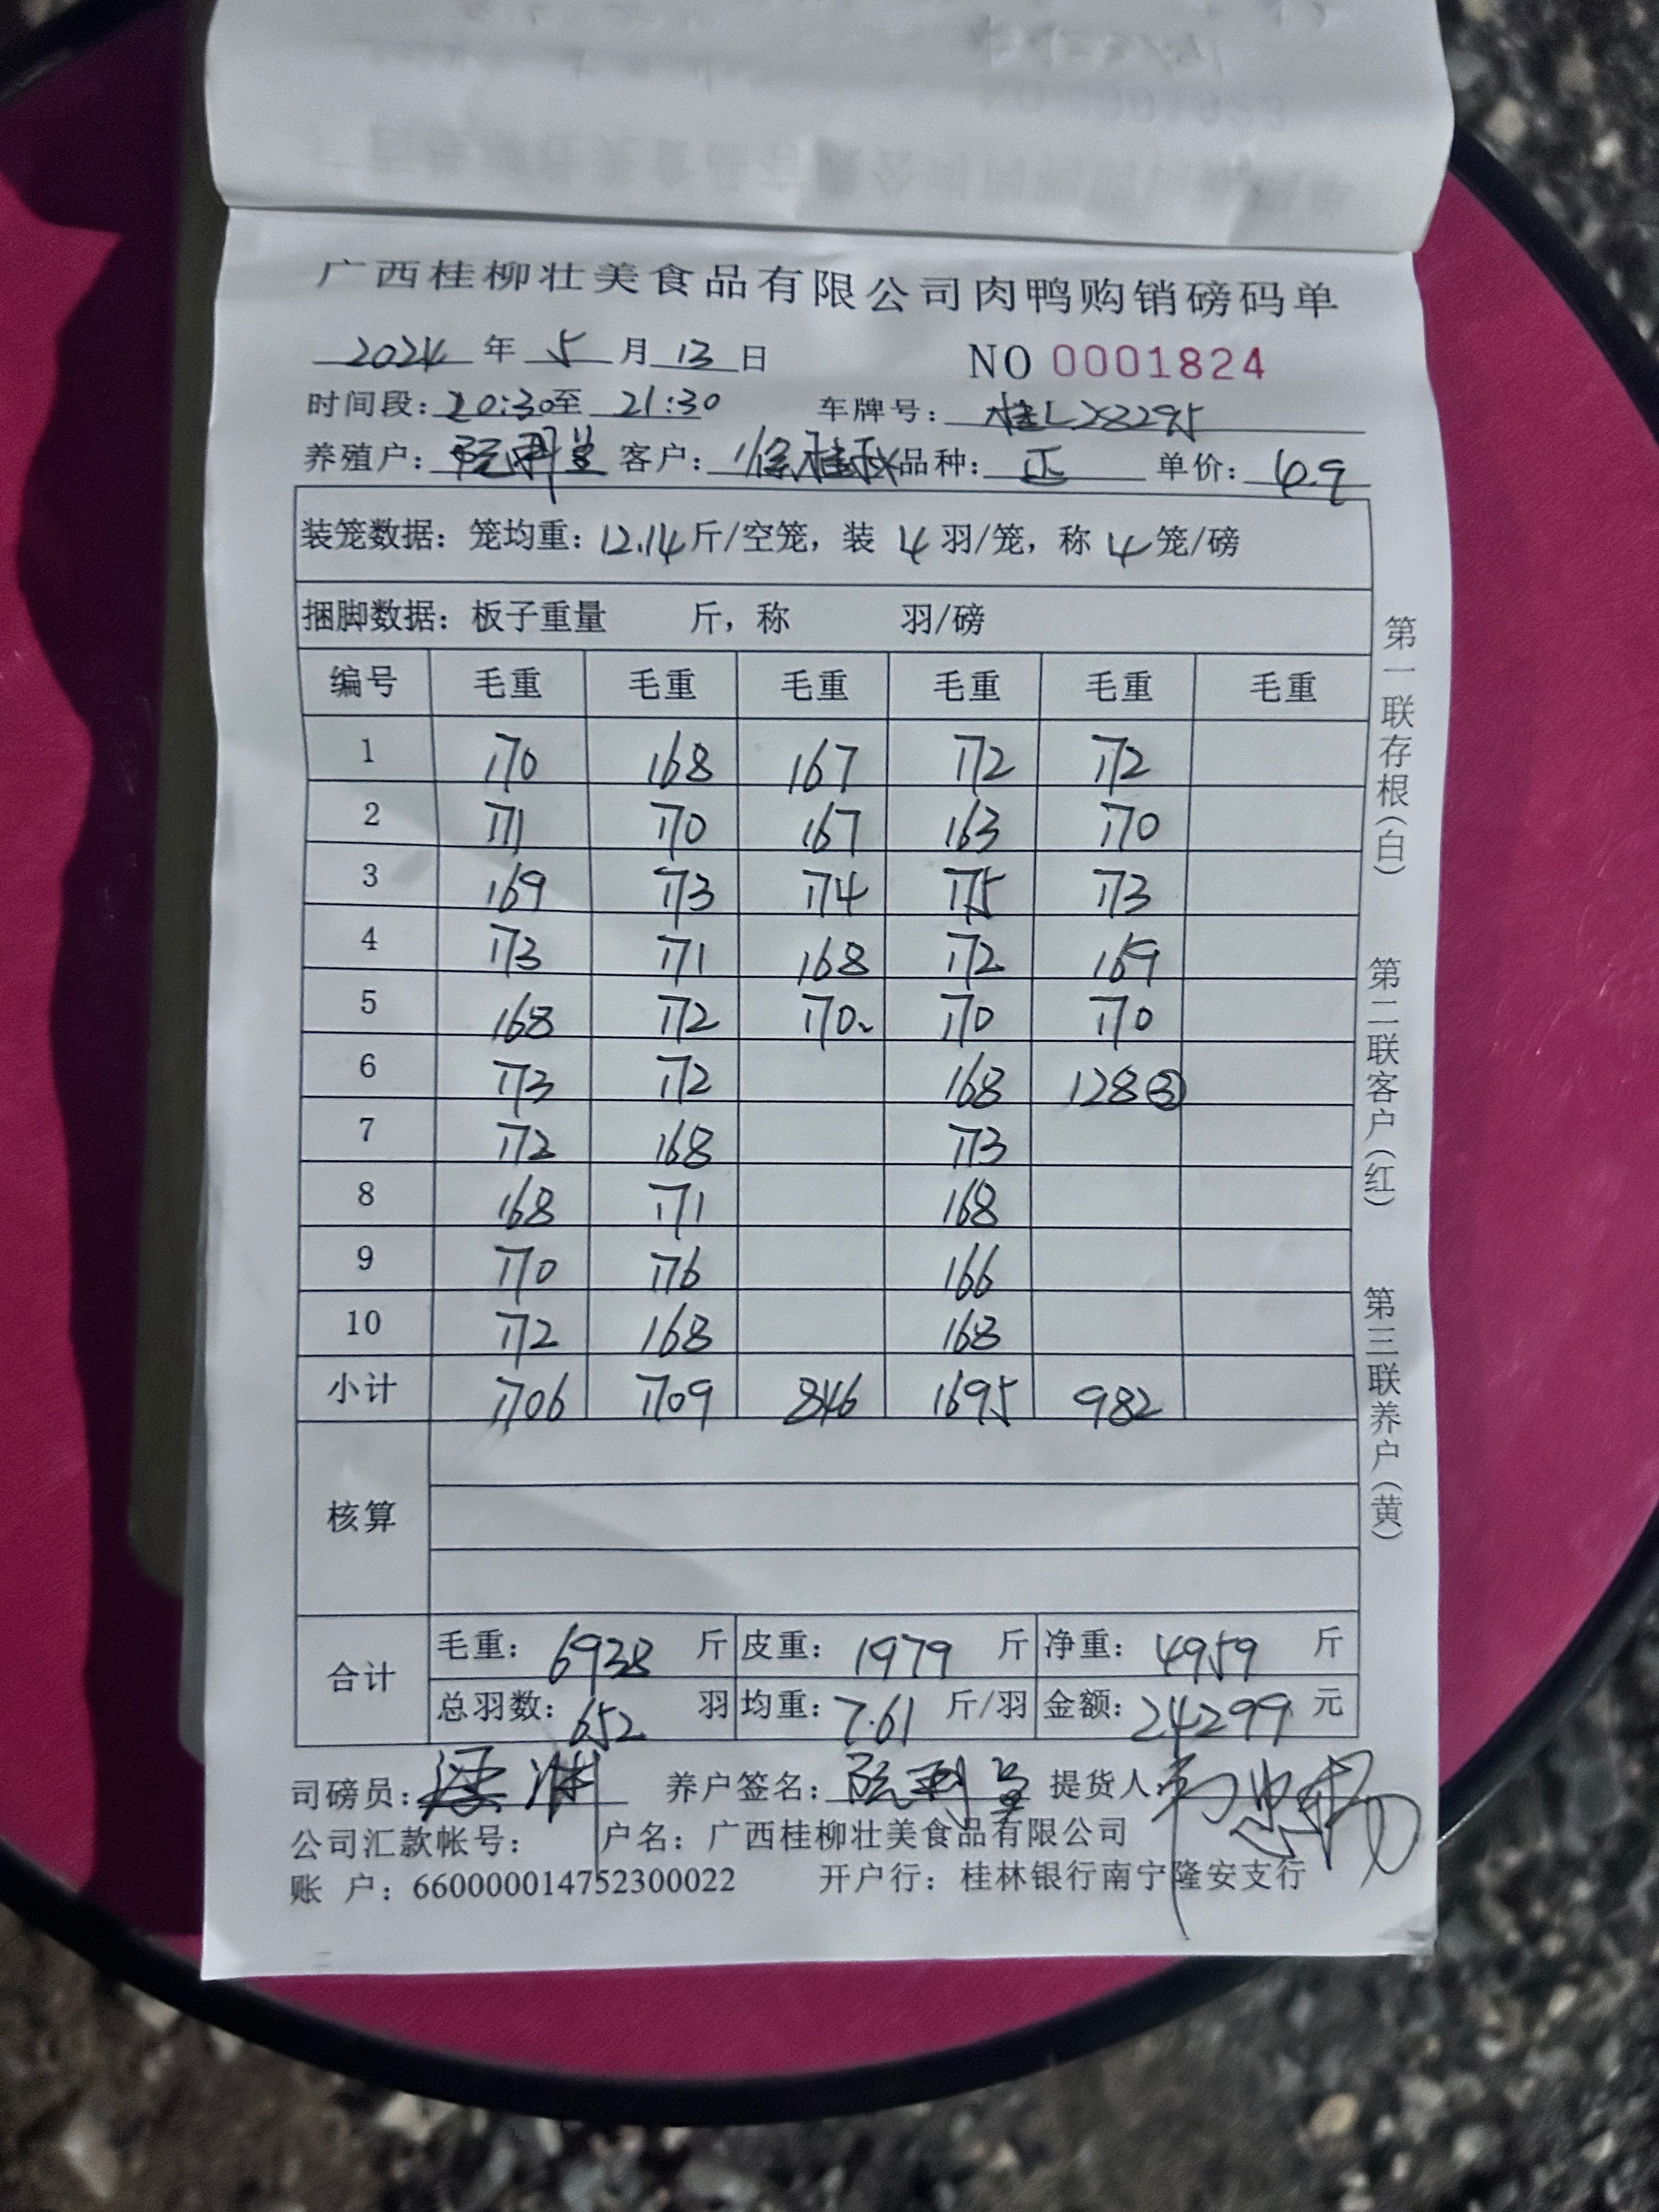 广西桂柳壮美食品有限公司肉鸭购销磅码单
2024 年 5 月 13 日 NO 0001824
时间段: 20:30至 21:30 车牌号: 桂L28295
养殖户: 客户: 徐桂秋 品种: 正 单价: 4.9
装笼数据: 笼均重: 12.14斤/空笼, 装 4 羽/笼, 称 4 笼/磅
捆脚数据: 板子重量 斤, 称 羽/磅
编号 毛重 毛重 毛重 毛重 毛重 毛重
1 170 168 167 172 172
2 171 170 167 163 170
3 169 173 174 175 173
4 173 171 168 172 169
5 168 172 170、 170 170
6 173 172 168 128③
7 172 168 173
8 168 171 168
9 170 176 166
10 172 168 168
小计 1706 1709 846 1695 982
核算
合计
毛重: 6938 斤 皮重: 1979 斤 净重: 4959 斤
总羽数: 652 羽 均重: 7.61 斤/羽 金额: 24299 元
司磅员: 养户签名: 提货人:
公司汇款帐号: 户名: 广西桂柳壮美食品有限公司
账 户: 660000014752300022 开户行: 桂林银行南宁隆安支行
第一联存根(白) 第二联客户(红) 第三联养户(黄)